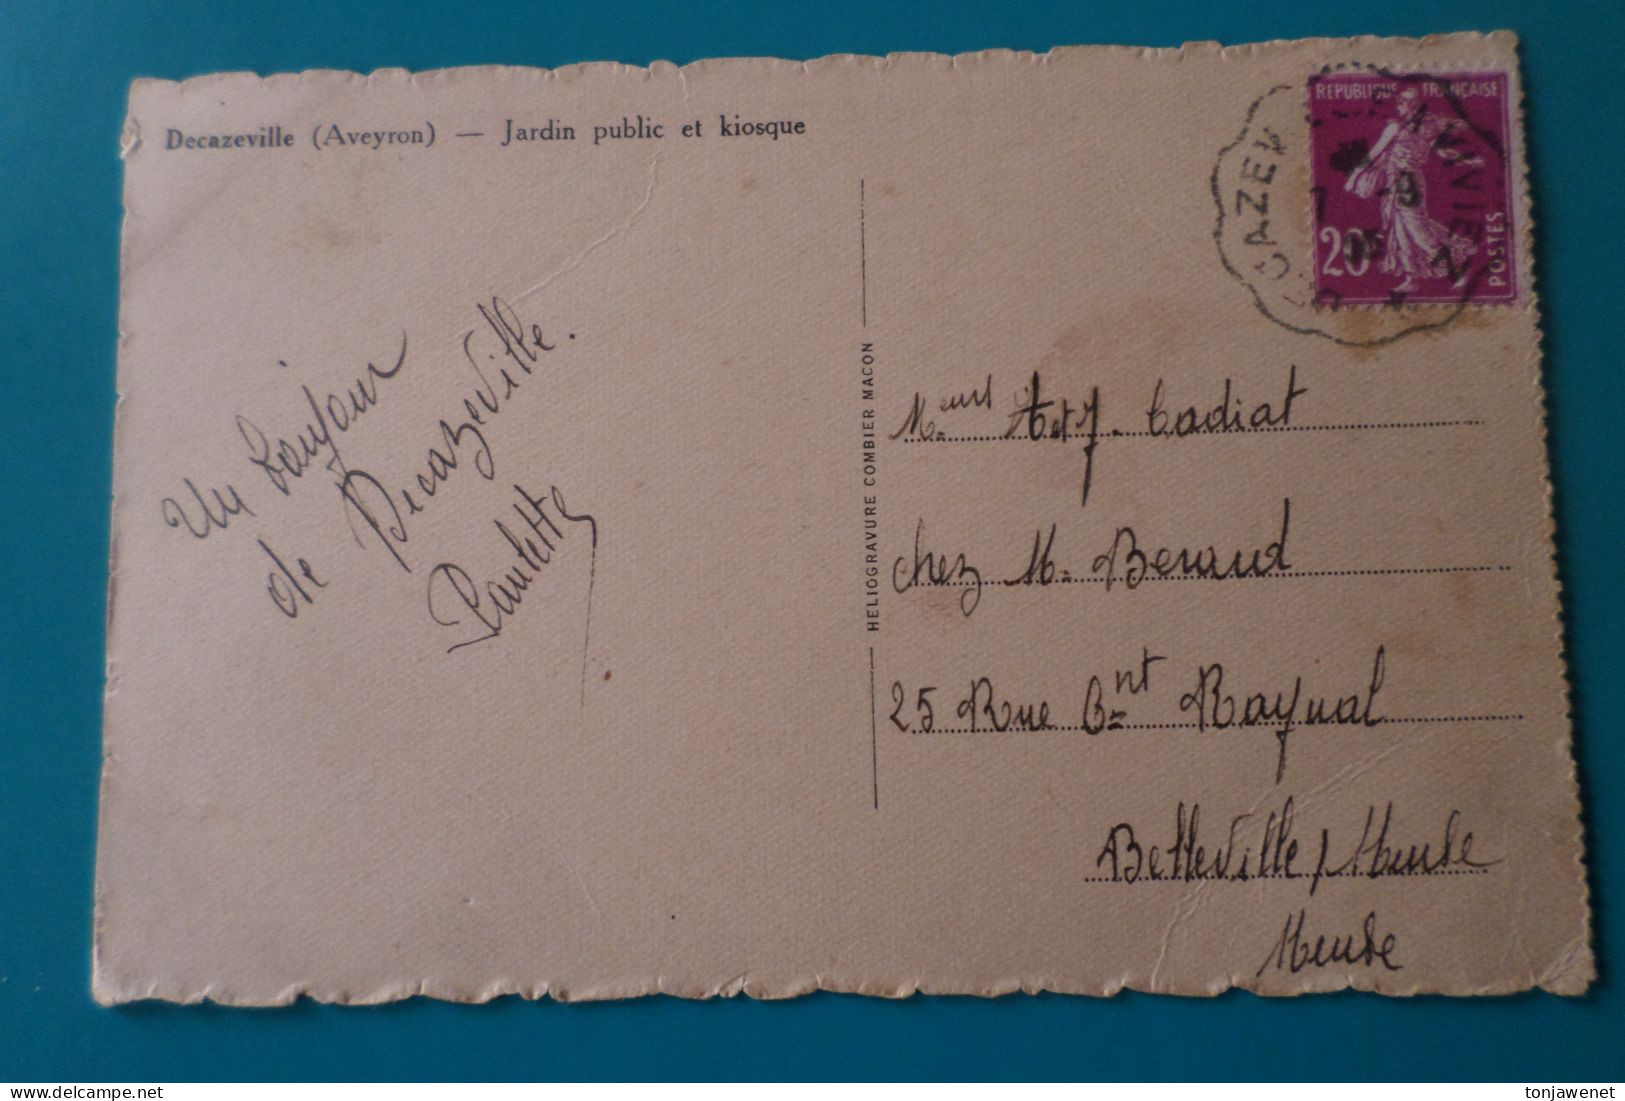 Decazeville (Aveyron) — Jardin public et kiosque
REPUBLIQUE FRANÇAISE
20c
POSTES
DECAZEV A VIVIEZ
-9
Un bonjour
de Decazeville.
Paulette
HELIOGRAVURE COMBIER MACON
M.eurs A et J. Cadiat
chez M. Beraud
25 Rue Bnt Raynal
Belleville / Meuse
Meuse
tonjawenet